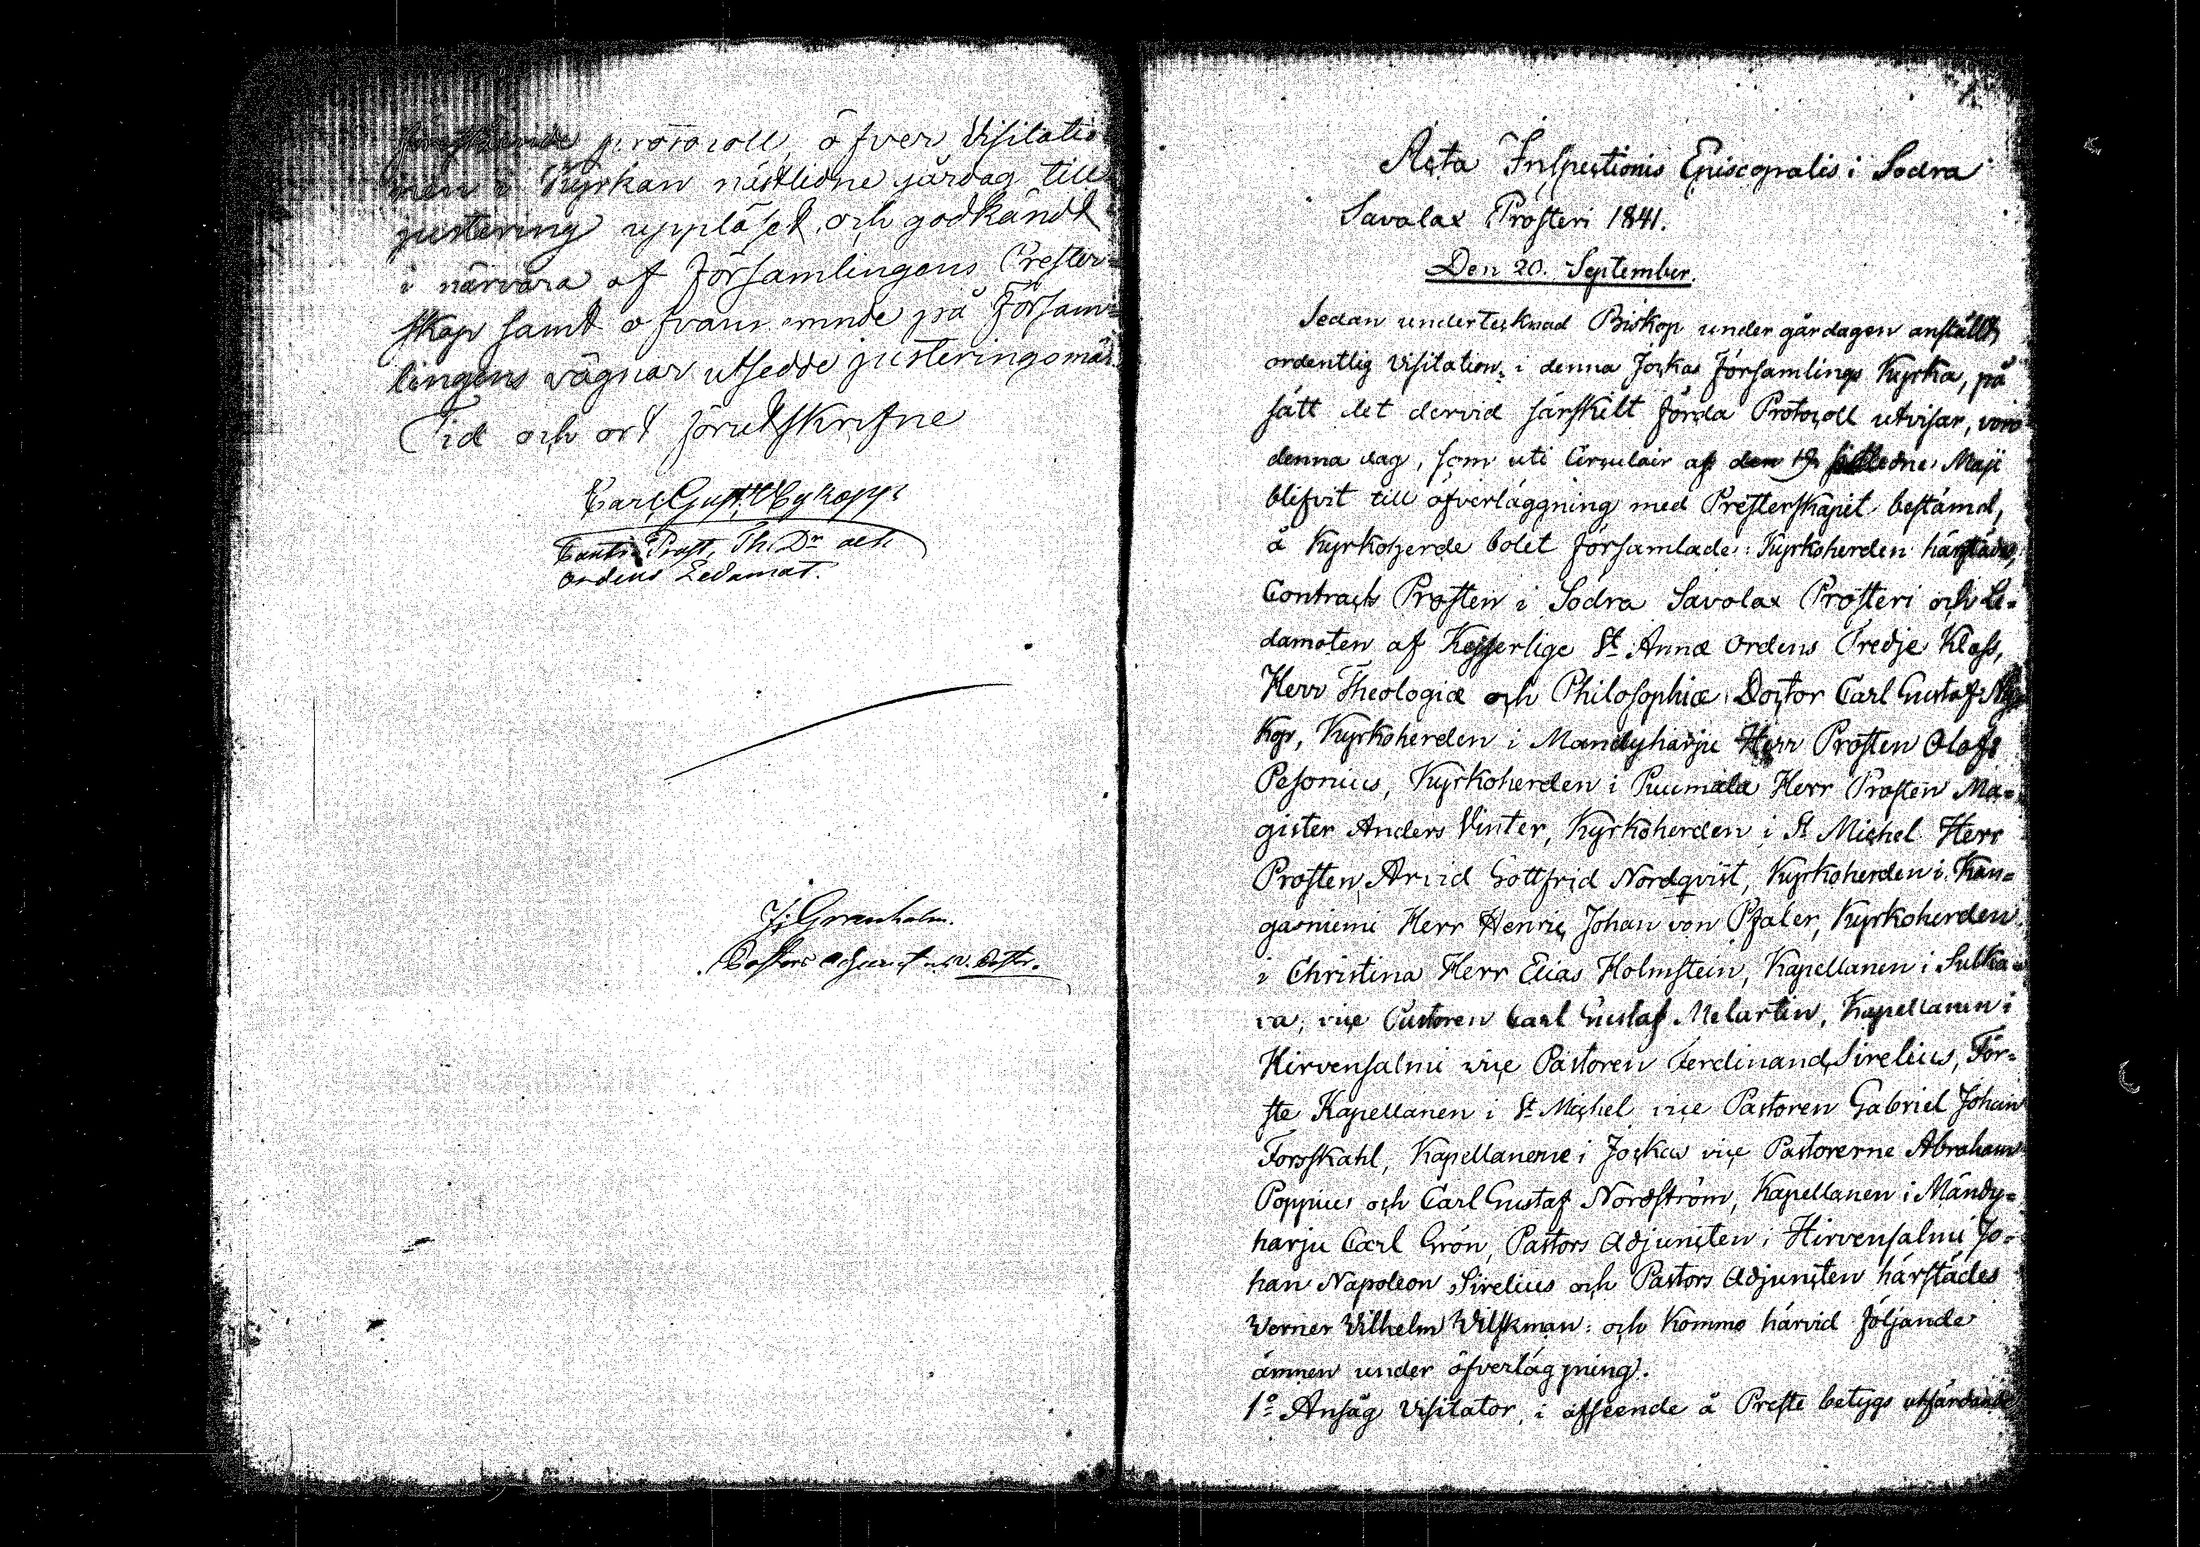 Förestående protocoll, öfver Visitatio
nen i Kyrkan nästledne gårdag till
justering uppläset och godkändt
i närvara af Församlingens Prester=
skap samt ofvannämnde på Försam=
lingens vägnar utsedde justeringsmän.
Tid och ort förutskrifne
Carl Gust. Nykopp
Contr. Prost, Th. Dr och
Ordens Ledamot.
J. Granholm.
Pastors Adjunct v. Pastor.
Acta Inspectionis Episcopalis i Södra
Savolax Prosteri 1841.
Den 20. September.
Sedan undertecknad Biskop under gårdagen anställt
ordentlig Visitation i denna Jockas Församlings Kyrka, på
sätt det dervid särskilt förda Protocoll utvisar, voro
denna dag, som uti Circulair af den sistledne Maji
blifvit till öfverläggning med Presterskapet bestämd,
å Kyrkoherde bolet församlade: Kyrkoherden härstädes,
Contracts Prosten i Södra Savolax Prosteri och Le=
damoten af Kejserlige St. Annæ Ordens Tredje Klass,
Herr Theologiæ och Philosophiæ Doctor Carl Gustaf Ny=
kop, Kyrkoherden i Mändyharju Herr Prosten Olof
Pesonius, Kyrkoherden i Puumala Herr Prosten Ma=
gister Anders Vinter, Kyrkoherden i St Michel Herr
Prosten Arvid Gottfrid Nordqvist, Kyrkoherden i Kan=
gasniemi Herr Henric Johan von Pfaler, Kyrkoherden
i Christina Herr Elias Holmstein, Kapellanen i Sulka=
va, vice Pastoren Carl Gustaf Melartin, Kapellanen i
Hirvensalmi vice Pastoren Ferdinand Sirelius, För=
ste Kapellanen i St Michel vice Pastoren Gabriel Johan
Forsskahl, Kapellanerne i Jockas vice Pastorerne Abraham
Poppius och Carl Gustaf Nordström, Kapellanen i Mändy=
harju Carl Grön, Pastors Adjuncten i Hirvensalmi Jo=
han Napoleon Sirelius och Pastors Adjuncten härstädes
Verner Vilhelm Wilskman: och kommo härvid följande
ämnen under öfverläggning.
1º Ansåg Visitator, i afseende å Preste betygs utfärdande